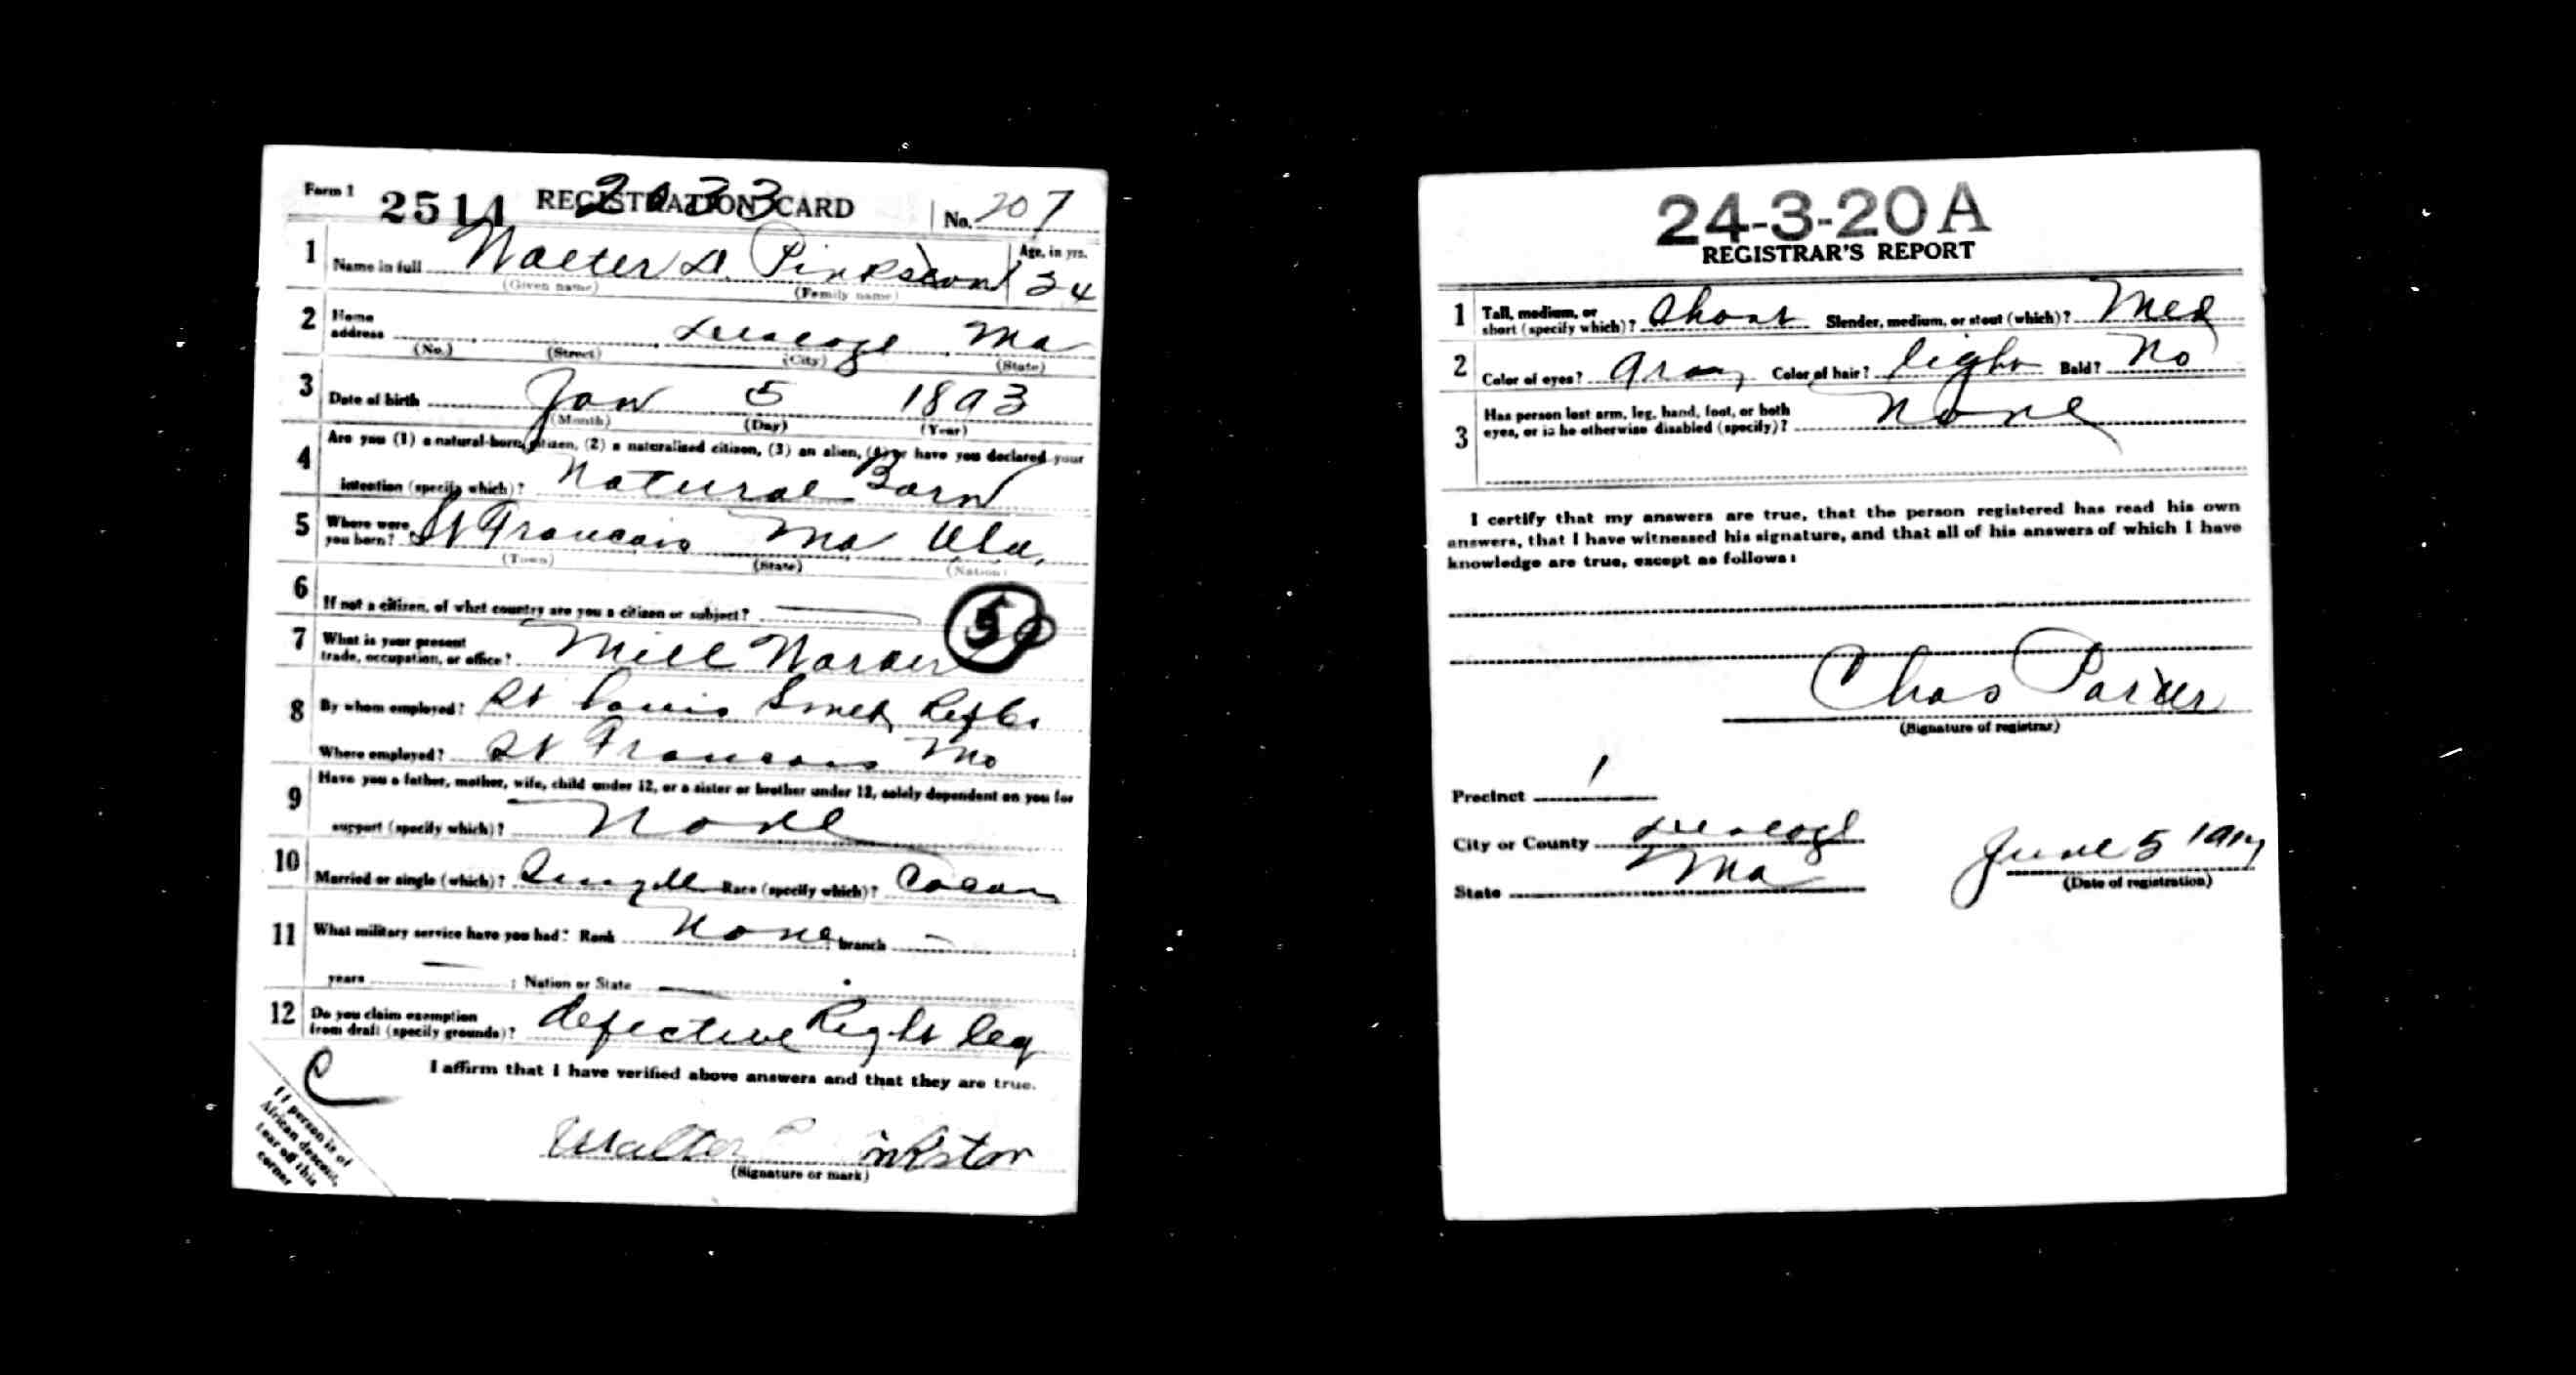 Form 1 2514 REGISTRATION CARD 2033 No. 207
1 Name in full Walter D. Pinkston Age, in yrs. 24
(Given name) (Family name)
2 Home address Mo
(No.) (Street) (City) (State)
3 Date of birth Jan 5 1893
(Month) (Day) (Year)
4 Are you (1) a natural-born citizen, (2) a naturalized citizen, (3) an alien, (4) or have you declared your
intention (specify which)? Natural Born
5 Where were you born? St Francois Mo USA
(Town) (State) (Nation)
6 If not a citizen, of what country are you a citizen or subject?
7 What is your present trade, occupation, or office? Mill Worker
8 By whom employed? St Louis Smelt
Where employed? St Francois Mo
9 Have you a father, mother, wife, child under 12, or a sister or brother under 12, solely dependent on you for
support (specify which)? None
10 Married or single (which)? Single Race (specify which)? Cocan
11 What military service have you had? Rank None; branch —;
years —; Nation or State —
12 Do you claim exemption from draft (specify grounds)? defective Right leg
C I affirm that I have verified above answers and that they are true.
Walter Pinkston
(Signature or mark)
If person is of
African descent,
tear off this
corner
24-3-20 A
REGISTRAR'S REPORT
1 Tall, medium, or short (specify which)? Short Slender, medium, or stout (which)? Med
2 Color of eyes? Gray Color of hair? light Bald? No
3 Has person lost arm, leg, hand, foot, or both
eyes, or is he otherwise disabled (specify)? None
I certify that my answers are true, that the person registered has read his own
answers, that I have witnessed his signature, and that all of his answers of which I have
knowledge are true, except as follows:
Chas Parker
(Signature of registrar)
Precinct 1
City or County
State Mo June 5 1917
(Date of registration)